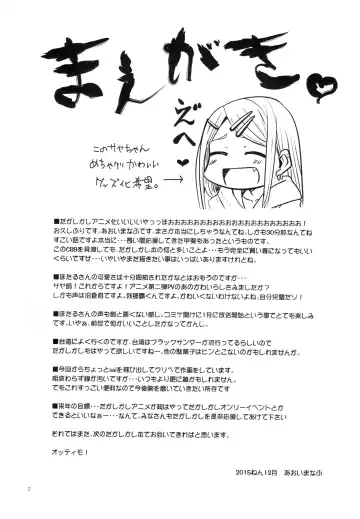 まえがき♥
ぇへ♥
このサヤちゃん
めちゃクソかわいい
グッズ化希望。
■だがしかしアニメ化いいいいやっっほおおおおおおおおおおおおおおおおおおおおお!
お久しぶりです、あおいまなぶです。まさか本当にしちゃうなんてね、しかも30分枠なんてね
すごい話ですよ本当に・・・長い間応援してきた甲斐もあったというものです。
このC89を見回してみても、だがしかし本の何と多いことよ・・・もう完全に買い専になってもいい
くらいですぜ…いやいやまだ描きたい事はいっぱいありますけれどね。
■ほたるさんの可愛さは十分周知されたかなとはおもうのですが・・・
サヤ師!これからですよ!アニメ第二弾PVのあのかわいらしさみましたか?
しかも声は沼倉君ですよ、我那覇くんですよ、かわいくないわけないよね。自分完璧だゾ!
■ほたるさんの声も割と違くない感じ。コミケ開けに1月に放送開始という事でとても楽しみ
です。いやぁ、前世で何がいいことしたかなって感じ。
■台湾によく行くのですが、台湾はブラックサンダーが流行ってるらしいので
だがしかしもはやって欲しいですねー。他の駄菓子はピンとこないのかもしれませんが。
■今回からちょっとsaiを飛び出してクリペで作画をしています。
相変わらず線が汚いですが・・・いつもより更に雑かもしれません。
でもこれすっごい便利なので今後頑張って磨いていきたい所存です
■来年の目標・・・だがしかしアニメが超はやってだがしかしオンリーイベントとか
できるといいなぁー・・・なんて、みなさんもだがしかしを是非応援してあげて下さい
それではまた、次のだがしかし本でお会いできればと思います。
オッティモ!
2015ねん12月 あおいまなぶ
2